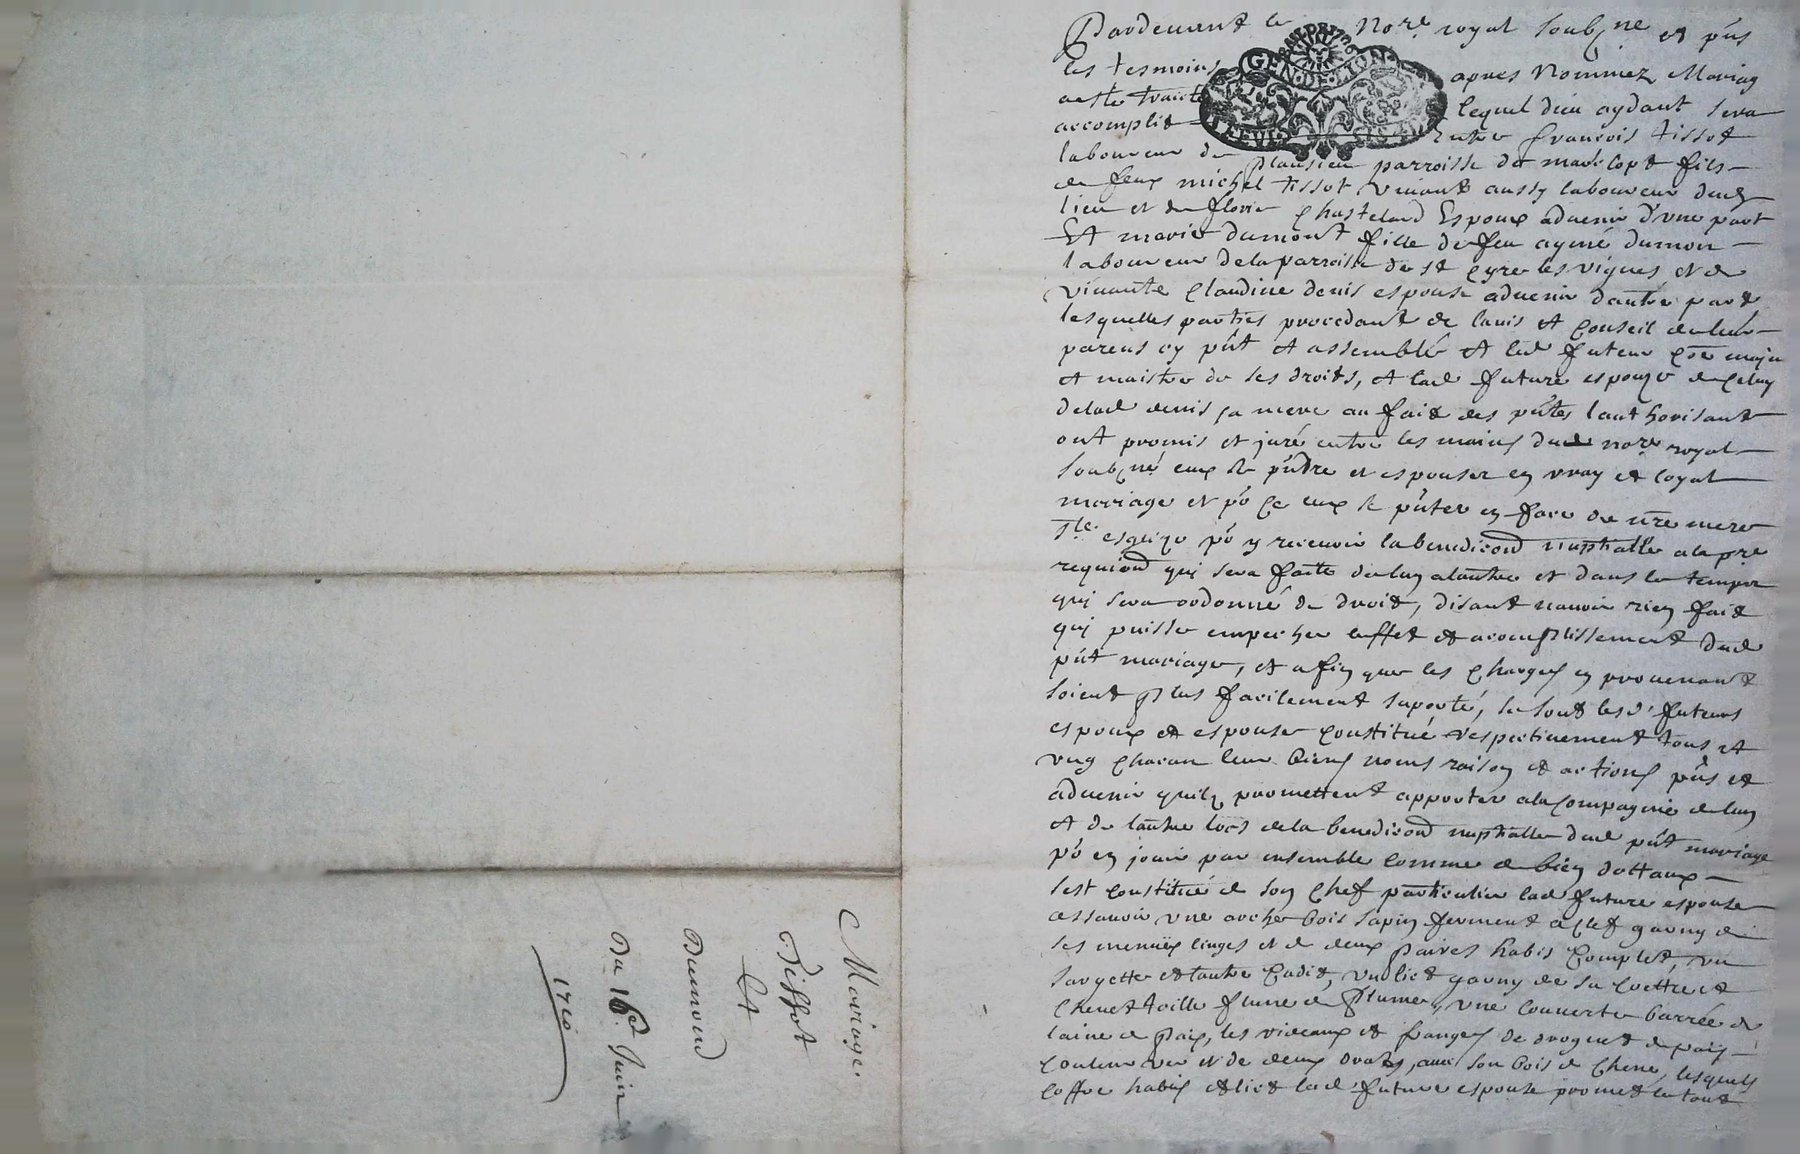 Pardevant le Nore royal soubne et pñs
les tesmoins apres nommez Mariag
a este traicté lequel dieu aydant sera
accomplit entre francois tissot
laboureur de plausieu parroisse de marclopt fils
de feux michel tissot vivant aussy laboureur dud
lieu et de florie Chastelard Espoux advenir d'une part
Et marie dumont fille de feu aymé dumon
laboureur de la parroisse de st Cyre les vignes et de
vivante Claudine denis espouse advenir dautre part
lesquelles parties procedant de lavis et Conseil de leur
parens cy pñt et assemblés et led futeur maju
et maistre de ses droits, et lad future espouze de celuy
delad denis sa mere au fait des pñtes lauthorisant
ont promis et juré entre les mains dud nore royal
soubné eux se pñdre et espouser en vray et loyal
mariage et po Ce eux se pñter en face de nre mere
Ste esglize po y recevoir la benediõn nuptialle a la pre
requiõn qui sera faitte de lun a lautre et dans le temps
qui sera ordonné de droit, disant navoir rien fait
qui puisse empecher leffet et accomplissement dud
pñt mariage, et afin que les Charges en provenant
soient plus facilement suporté, se sont lesd futeurs
espoux et espouse Constitué respectivement tous et
ung Chacun leur biens noms raison et actions pñs et
advenir quils promettent apporter a la Compagnie de lun
et de lautre lors de la benediõn nuptialle dud pñt mariage
po en jouir par ensemble Comme de bien dottaux
sest Constitué de son Chef particulier lad future espouse
assavoir une arche bois sapin ferment a Clef garny de
ses menues linges et de deux paires habis Complet, un
sargette et lautre Cadis, un lict garny de sa Coettre et
Chevet toille plume de plume, une Couverte barrée de
laine de païs, les rideaux et franges de droguet de païs
Couleur ver et de deux draps, avec son bois de Chene, lesquels
Coffre habis et lict lad future espouse promet le tout
Mariage.
Tissot
Et
Dumond
Du 16e. Juin